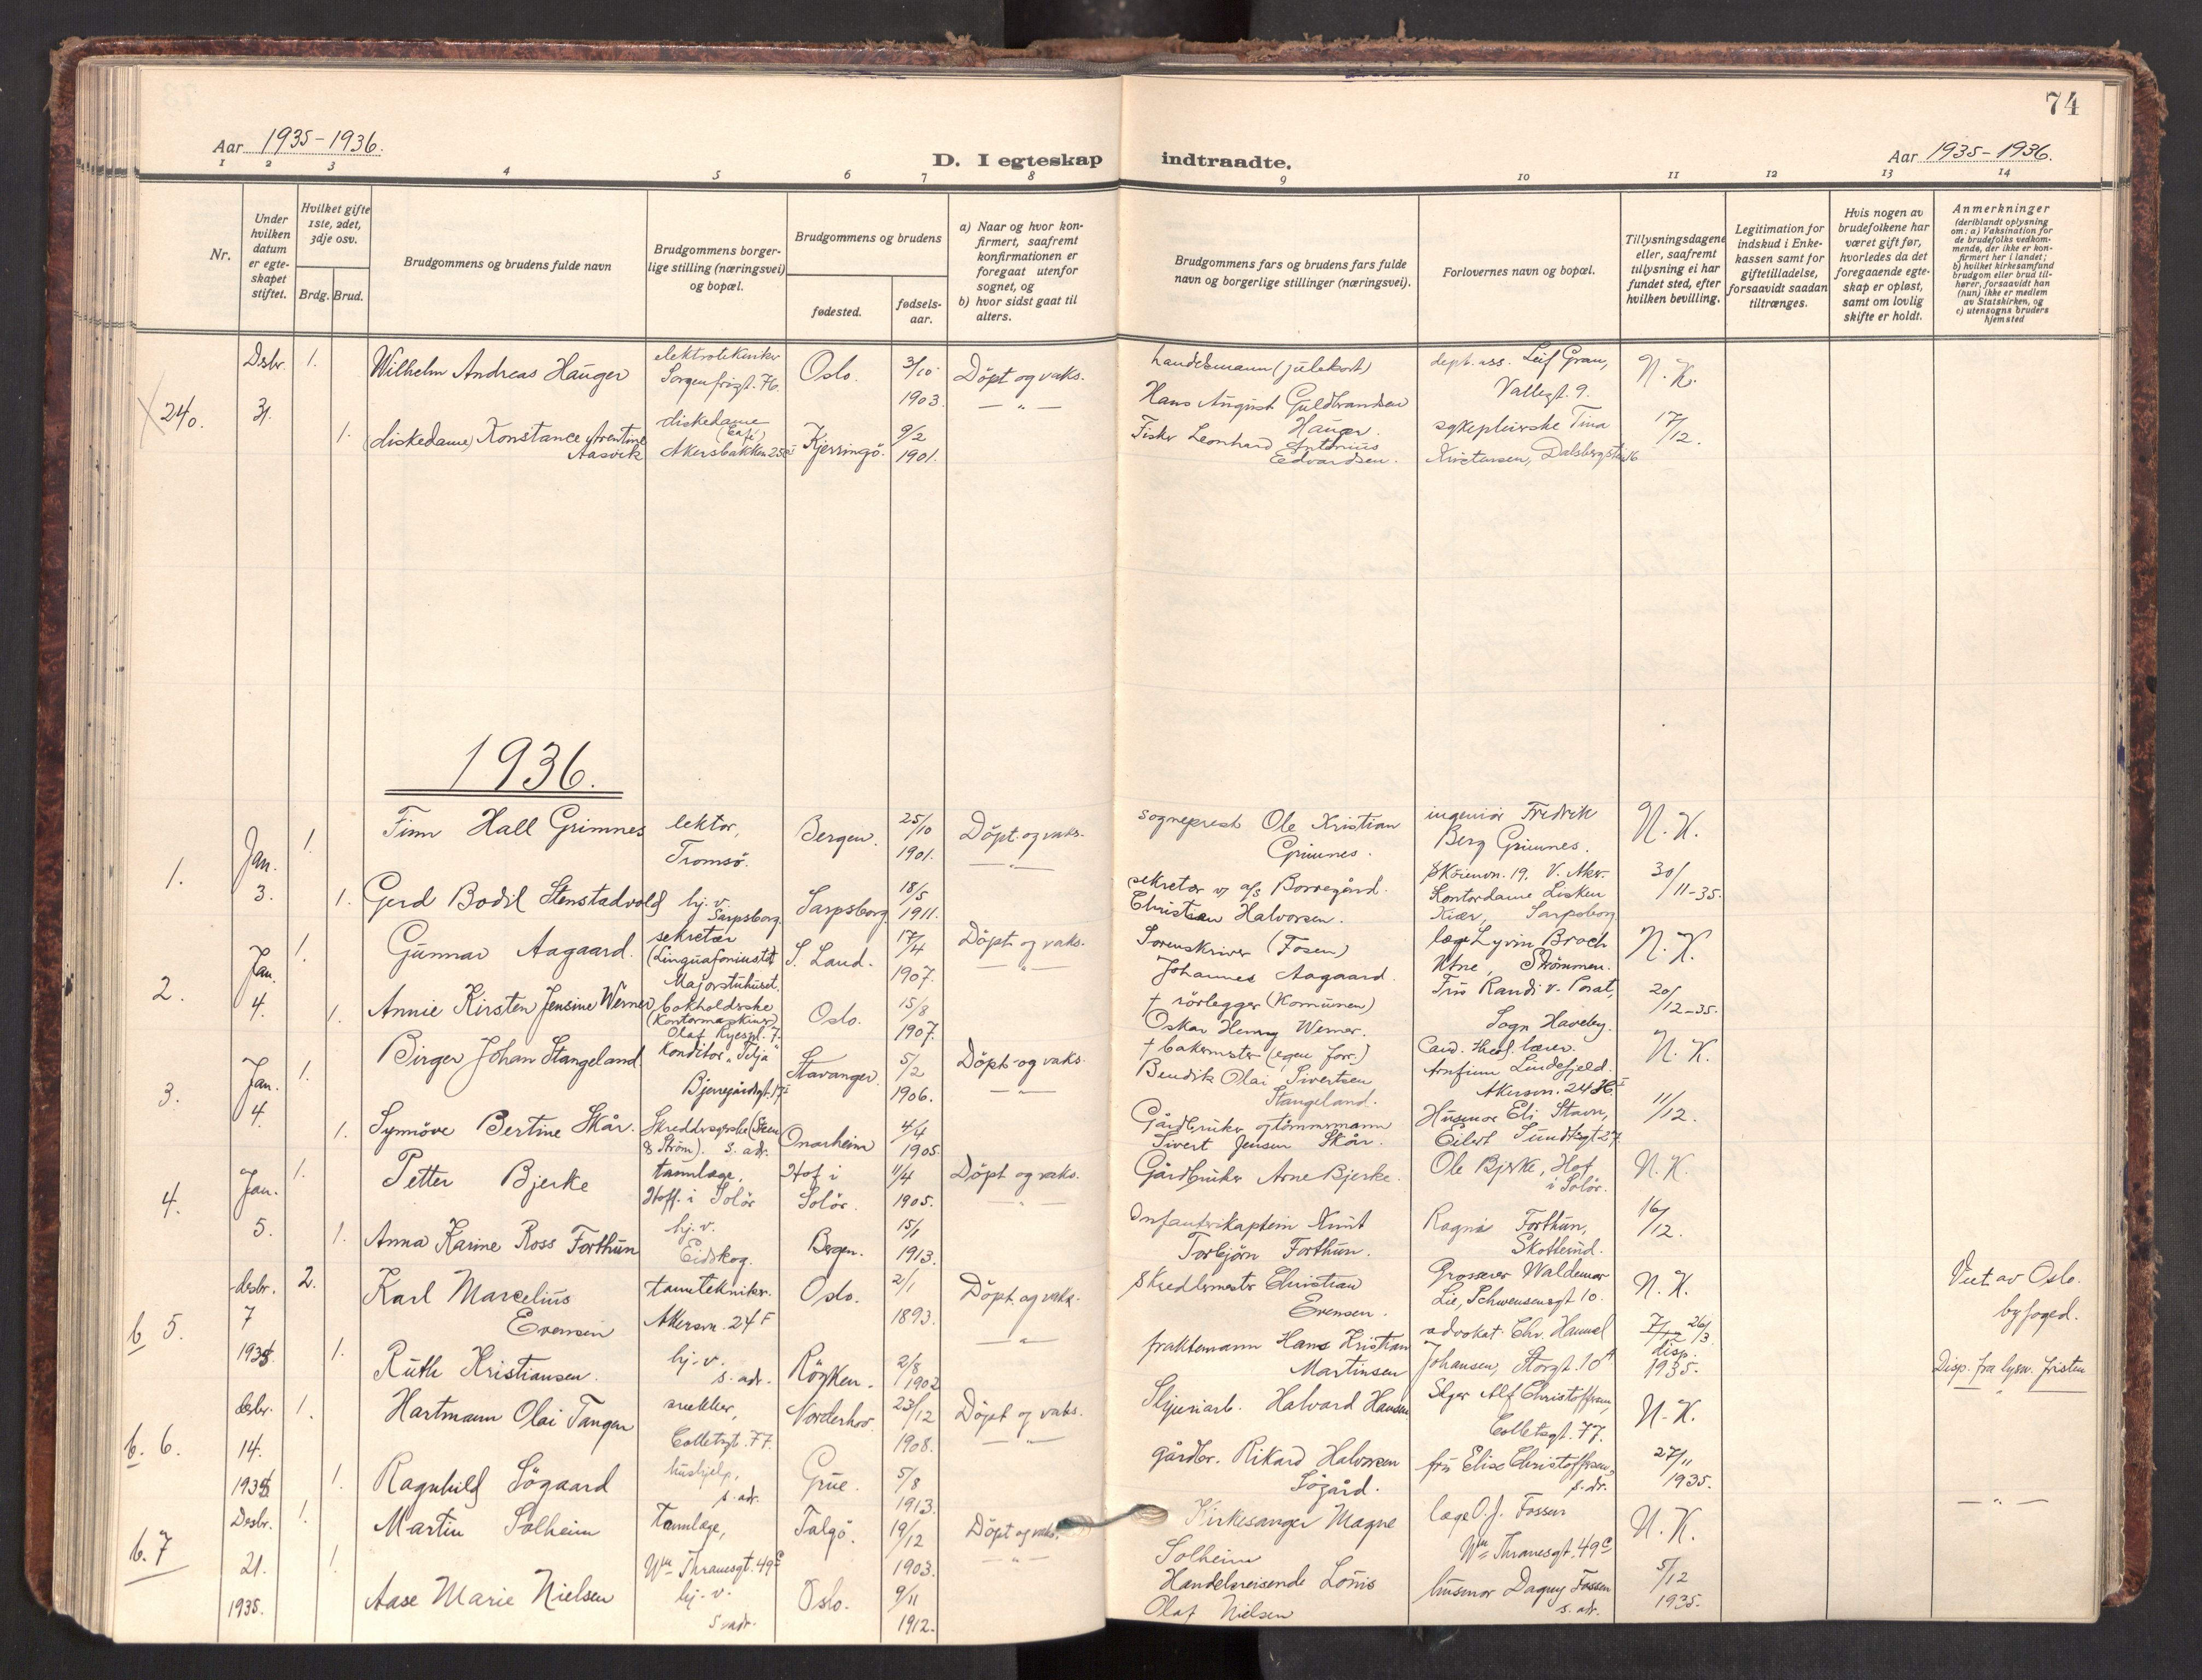 74
Aar 1935-1936.
D. I egteskap indtraadte.
Aar 1935-1936.
1 2 3 4 5 6 7 8 9 10 11 12 13 14
Nr.
Under
hvilken
datum
er egte-
skapet
stiftet.
Hvilket gifte
1ste, 2det,
3dje osv.
Brdg. Brud.
Brudgommens og brudens fulde navn
Brudgommens borger-
lige stilling (næringsvei)
og bopæl.
Brudgommens og brudens
fødested.
fødsels-
aar.
a) Naar og hvor kon-
firmert, saafremt
konfirmationen er
foregaat utenfor
sognet, og
b) hvor sidst gaat til
alters.
Brudgommens fars og brudens fars fulde
navn og borgerlige stillinger (næringsvei).
Forlovernes navn og bopæl.
Tillysningsdagene
eller, saafremt
tillysning ei har
fundet sted, efter
hvilken bevilling.
Legitimation for
indskud i Enke-
kassen samt for
giftetilladelse,
forsaavidt saadan
tiltrænges.
Hvis nogen av
brudefolkene har
været gift før,
hvorledes da det
foregaaende egte-
skap er opløst,
samt om lovlig
skifte er holdt.
Anmerkninger
(deriblandt oplysning
om: a) Vaksination for
de brudefolks vedkom-
mende, der ikke er kon-
firmert her i landet;
b) hvilket kirkesamfund
brudgom eller brud til-
hører, forsaavidt han
(hun) ikke er medlem
av Statskirken, og
c) utensogns bruders
hjemsted
240.
Dsbr.
31.
1.
Wilhelm Andreas Hauger
elektrotekniker
Sorgenfrigt. 76.
Oslo.
3/10
1903.
Döpt og vaks.
— " —
handelsmann (julekort)
Hans August Guldbrandsen
Hauger.
dept. ass. Leif Gran,
Vallegt. 9.
N. K.
1.
(diskedame) Konstance Arentine
Aasvik
diskedame
(Café)
Akersbakken 25
Kjerringö.
9/2
1901.
Fisker Leonhard Antonius
Edvardsen.
sykepleierske Tina
Dalsbergst. 16
17/12.
1936.
1.
Jan.
3.
1.
Finn Hall Grimnes
lektor,
Tromsö.
Bergen.
25/10
1901.
Döpt og vaks.
— " —
sogneprest Ole Kristian
Grimnes.
ingeniör Fredrik
Berg Grimnes.
Sköienvn. 19, V. Aker.
N. K.
1.
Gerd Bodil Stenstadvold
hj. v.
Sarpsborg.
Sarpsborg
18/5
1911.
sekretær v/ a/s Borregård.
Christian Halvorsen.
Kontordame Lisken
Kiær, Sarpsborg
30/11-35.
2.
Jan.
4.
1.
Gunnar Aagaard.
sekretær
(Linguafoninstit.
Majorstuhuset.
S. Land.
17/4
1907.
Döpt og vaks.
— " —
Sorenskriver (Fosen)
Johannes Aagaard.
læge Lyvin Broch
Utne, Strömmen.
N. K.
1.
Annie Kirsten Jensine Werner
bokholderske
(Kontormaskiner)
Olaf Ryespl. 7.
Oslo.
15/8
1907.
† rörlegger (Komunen)
Oskar Henry Werner.
Fru Randi v. Porat,
Sogn Haveby.
20/12-35.
3.
Jan.
4.
1.
Birger Johan Stangeland
Konditor "Telja"
Bjerregårdsgt. 17 I
Stavanger.
5/2
1906.
Döpt og vaks.
— " —
† bakermster (egen forr.)
Bendik Olai Sivertsen
Stangeland.
Cand. theol. lærer
Arnfinn Lindefjeld.
Akersvn. 24 H I
N. K.
1.
Synnöve Bertine Skår.
Skreddersyerske (Steen
& Ström). s. adr.
Onarheim
4/4
1905.
Gårdbruker og tömmermann
Sivert Jensen Skår.
Husmor Eli Stavn,
Eilert Sundtsgt 27
11/12.
4.
Jan.
5.
1.
Petter Bjerke
tannlæge,
Hoff. i Solör
Hof i
Solör.
11/4
1905.
Döpt og vaks.
— " —
Gårdbruker Arne Bjerke.
Ole Bjerke, Hof
i Solör.
N. K.
1.
Anna Karine Ross Forthun
hj. v.
Eidskog.
Bergen.
15/1
1913.
Infanterikaptein Knut
Torbjörn Forthun.
Ragna Forthun,
Skotterud.
16/12.
b 5.
desbr.
7
1935.
2.
Karl Marcelius
Evensen
tanntekniker.
Akersvn. 24 F
Oslo.
2/1
1893.
Döpt og vaks.
— " —
Skreddermester Christian
Evensen.
Grosserer Waldemar
Lie, Schwensensgt 10.
N. K.
Viet av Oslo
byfoged.
1.
Ruth Kristiansen.
hj. v.
s. adr.
Röyken.
2/8
1902
fraktemann Hans Kristian
Martinsen
advokat Chr. Hammel
Johansen, Storgt. 10 A
26/3
disp.
1935.
Disp. fra lysn. fristen
b. 6.
desbr.
14.
1935
1.
Hartmann Olai Tangen
snekker,
Colletsgt. 77.
Norderhov.
23/12
1908.
Döpt og vaks.
— " —
Sliperiarb. Halvard Hansen
Alf Christoffersen,
Colletsgt. 77.
N. K.
1.
Ragnhild Sögaard
hushjelp,
s. adr.
Grue.
5/8
1913.
gårdbr. Rikard Halvorsen
Sögård.
fru Elise Christoffersen,
s. adr.
27/11
1935.
— " —
b. 7
Desbr.
21.
1935.
1.
Martin Solheim
Tannlæge,
Wm Thranesgt. 49 C
Talgö.
19/12
1903.
Döpt og vaks.
— " —
Kirkesanger Magne
Solheim
læge O. J. Fossen
Wm Thranesgt. 49 C
N. K.
1.
Aase Marie Nielsen
hj. v.
s. adr.
Oslo.
9/11
1912.
Handelsreisende Louis
Olaf Nielsen
husmor Dagny Fossen
s. adr.
5/12
1935.